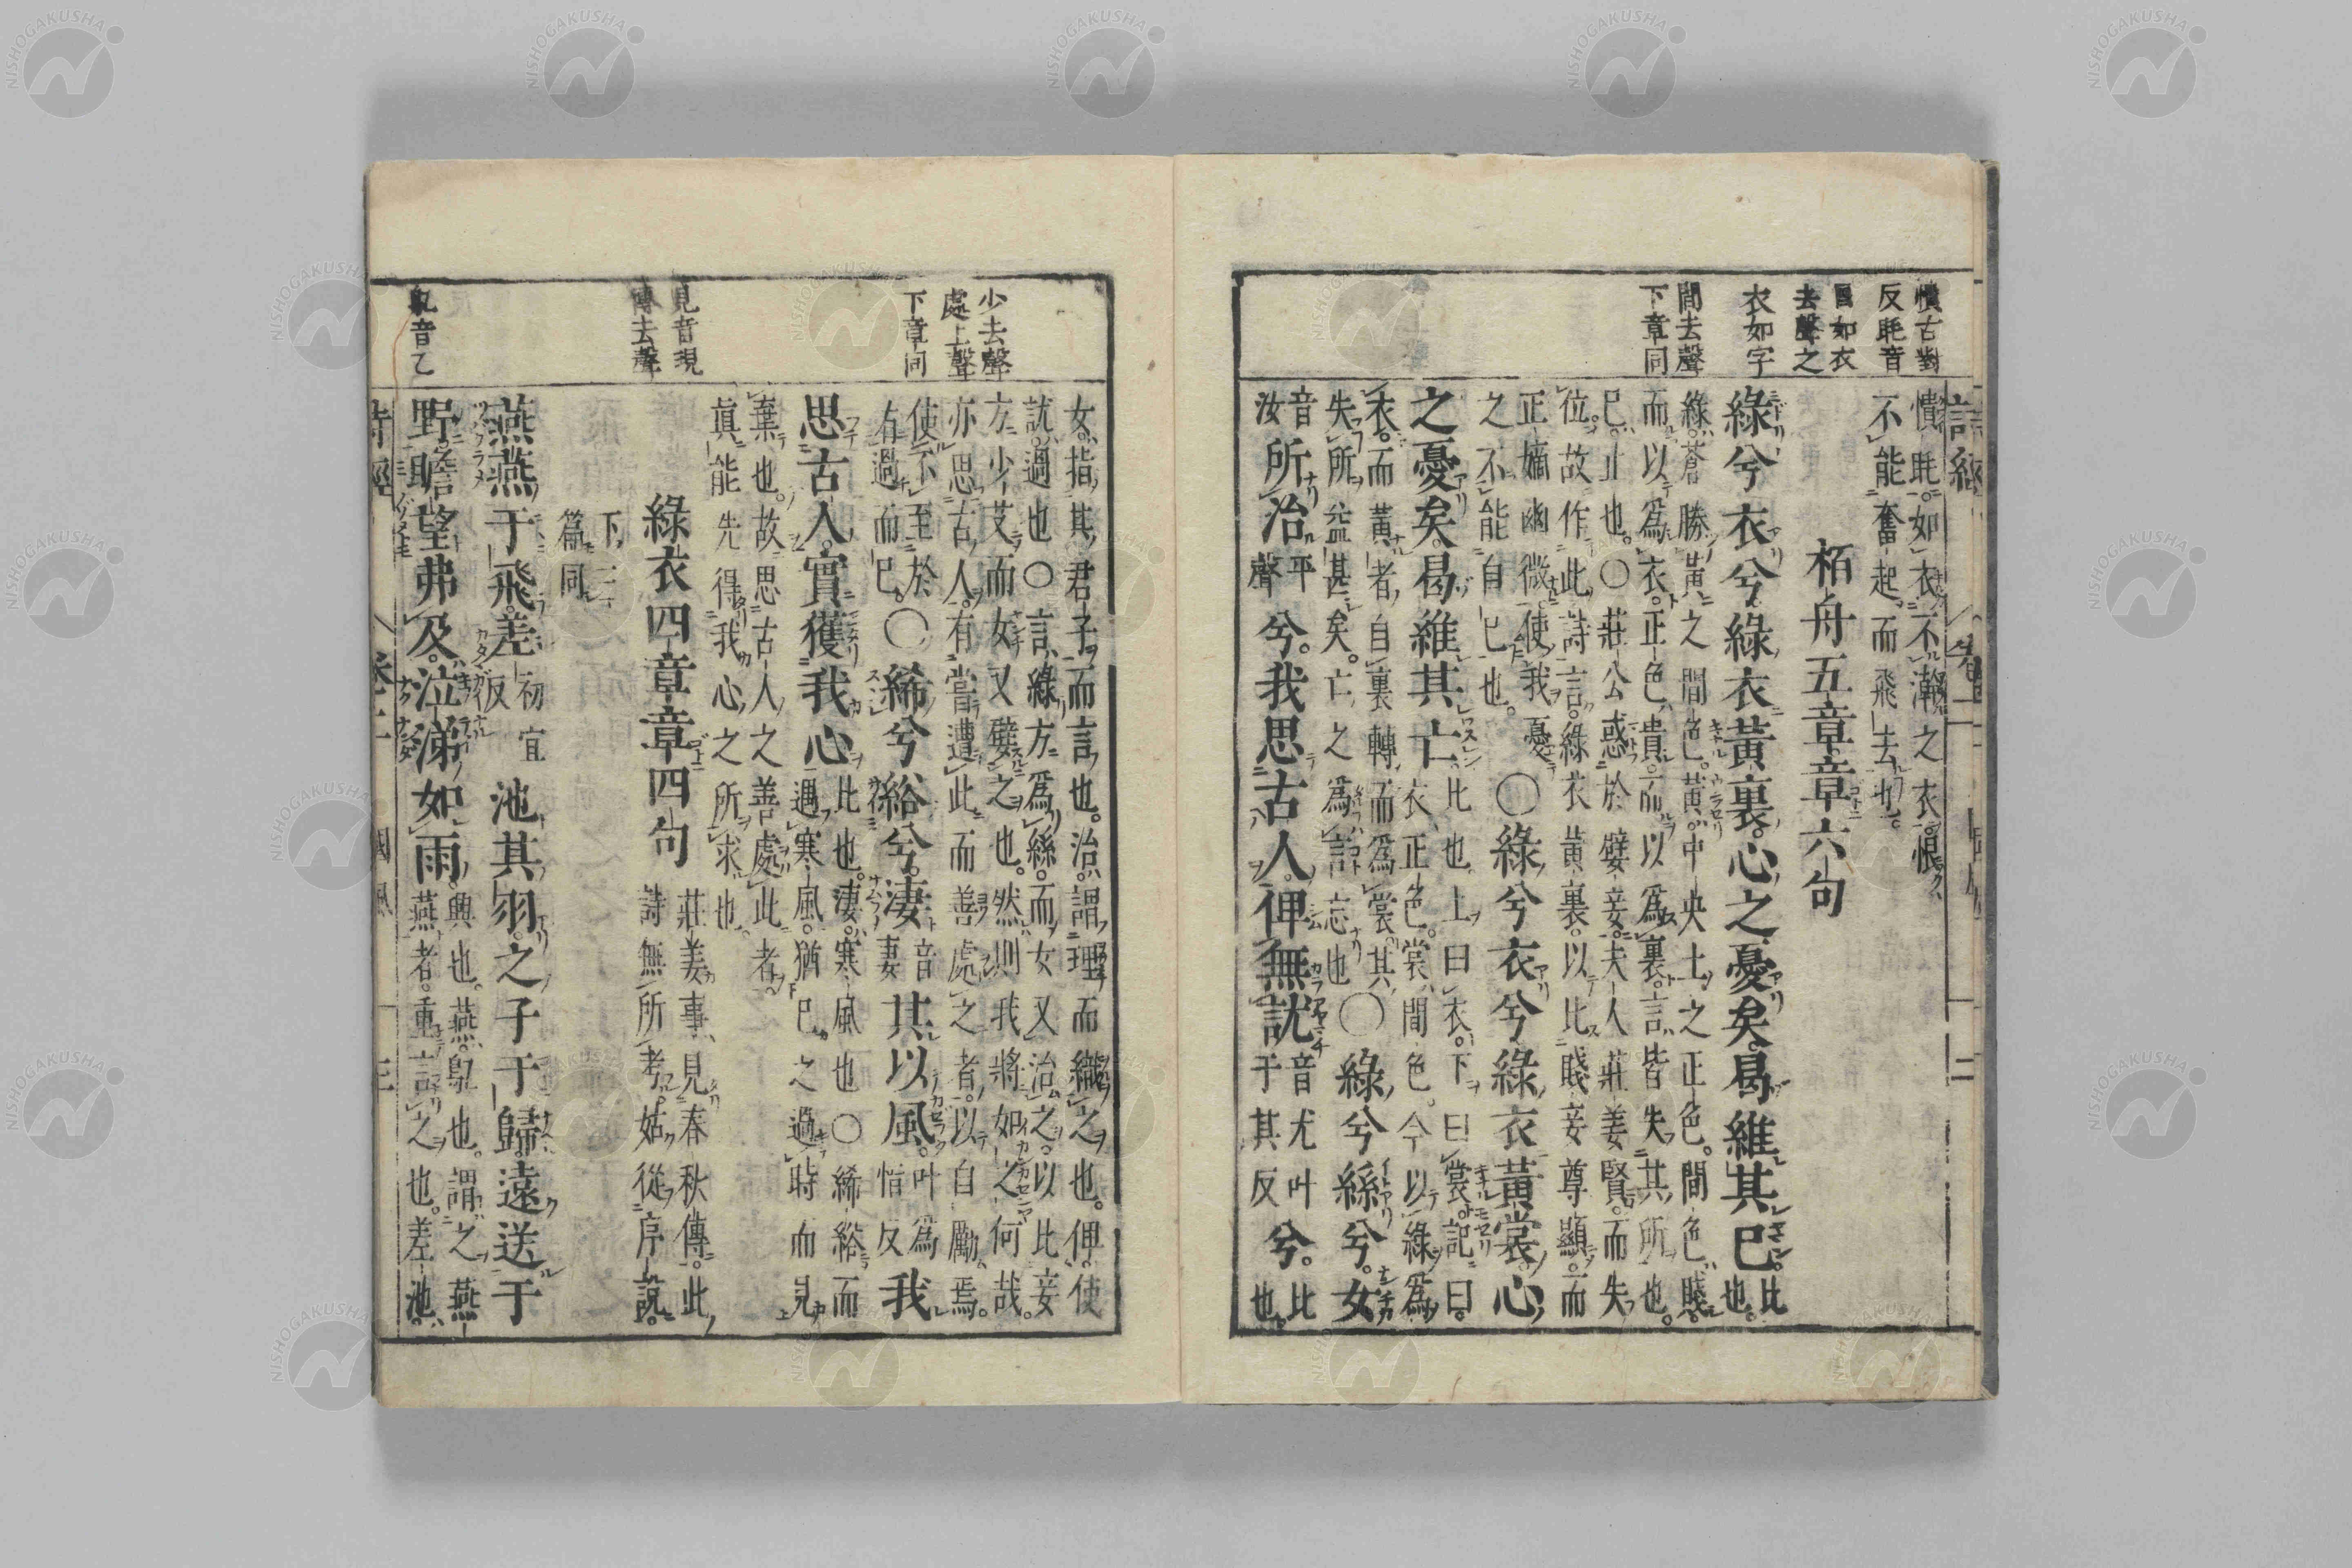 憒古對
反眊音
冒如衣
去聲之
衣如字
間去聲
下章同
憒眊如衣不澣之衣恨
不能奮起而飛去也
栢舟五章章六句
綠兮衣兮綠衣黃裏心之憂矣曷維其已比也
綠蒼勝黃之間色黃中央土之正色間色賤
而以爲衣正色貴而以爲裏言皆失其所也
已止也○莊公惑於嬖妾夫人莊姜賢而失
位故作此詩言綠衣黃裏以比賤妾尊顯而
正嫡幽微使我憂
之不能自已也○綠兮衣兮綠衣黃裳心
之憂矣曷維其亡比也上曰衣下曰裳記曰
衣正色裳間色今以綠爲
衣而黃者自裏轉而爲裳其
失所益甚矣亡之爲言忘也○綠兮絲兮女
音汝所治平聲兮我思古人俾無訧音尤叶于其反兮比也
少去聲
處上聲
下章同
見音現
傳去聲
鳦音乙
女指其君子而言也治謂理而織之也俾使
訧過也○言綠方爲絲而女又治之以比妾
方少艾而女又嬖之也然則我將如之何哉
亦思古人有嘗遭此而善處之者以自勵焉
使不至於
有過而已○絺兮綌兮淒音妻其以風叶爲愔反我
思古人實獲我心比也淒寒風也○絺綌而
遇寒風猶已之過時而見
棄也故思古人之善處此者
眞能先得我心之所求也
綠衣四章章四句莊姜事見春秋傳此
詩無所考姑從序說
下三
篇同
燕燕于飛差初宜反池其羽之子于歸遠送于
野瞻望弗及泣涕如雨興也燕鳦也謂之燕
燕者重言之也差池
詩經
卷二
國風
三